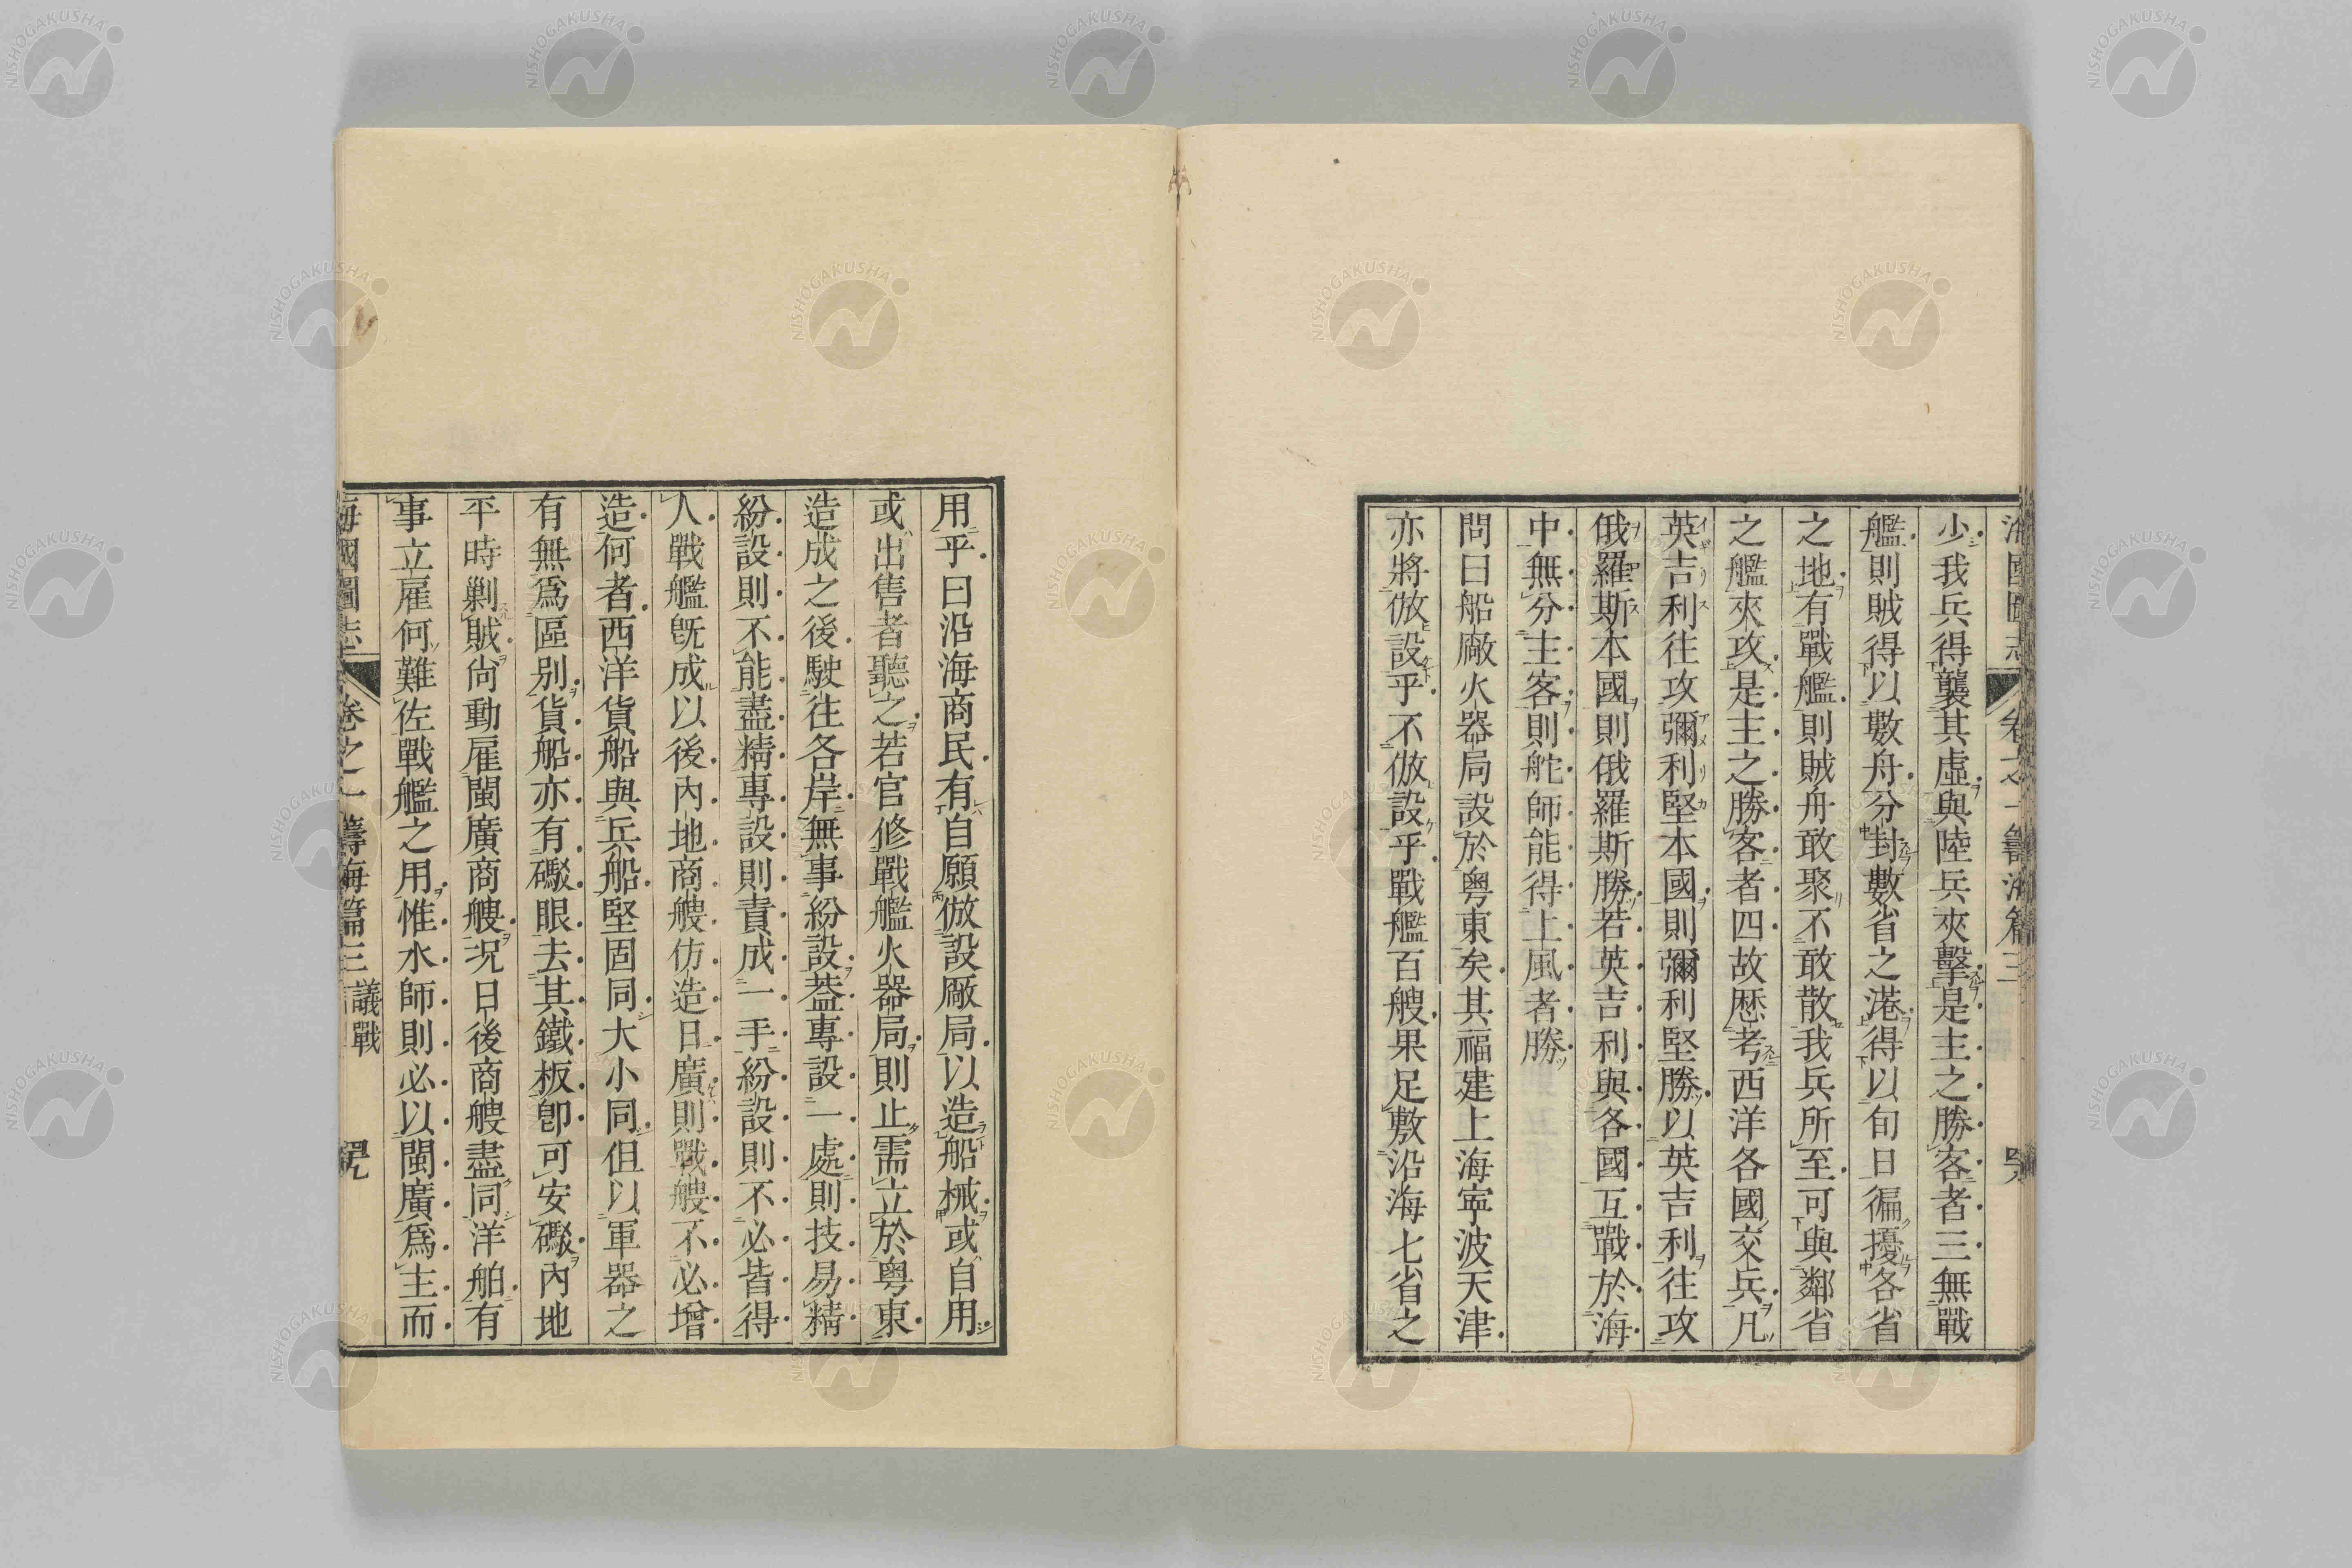 海國圖志 卷之一 籌海篇三
少我兵得襲其虛與陸兵夾擊是主之勝客者三無戰
艦則賊得以數舟分封數省之港得以旬日徧擾各省
之地有戰艦則賊舟敢聚不敢散我兵所至可與鄰省
之艦來攻是主之勝客者四故歷考西洋各國交兵凡
英吉利往攻彌利堅本國則彌利堅勝以英吉利往攻
俄羅斯本國則俄羅斯勝若英吉利與各國互戰於海
中無分主客則舵師能得上風者勝
問曰船廠火器局設於粵東矣其福建上海寧波天津
亦將倣設乎不倣設乎戰艦百艘果足敷沿海七省之
用乎曰沿海商民有自願倣設廠局以造船械或自用
或出售者聽之若官修戰艦火器局則止需立於粵東
造成之後駛往各岸無事紛設葢專設一處則技易精
紛設則不能盡精專設則責成一手紛設則不必皆得
人戰艦旣成以後內地商艘仿造日廣則戰艘不必增
造何者西洋貨船與兵船堅固同大小同但以軍器之
有無爲區別貨船亦有礮眼去其鐵板卽可安礮內地
平時剿賊尙動雇閩廣商艘况日後商艘盡同洋舶有
事立雇何難佐戰艦之用惟水師則必以閩廣爲主而
海國圖志 卷之一 籌海篇三 議戰
NISHOGAKUSHA